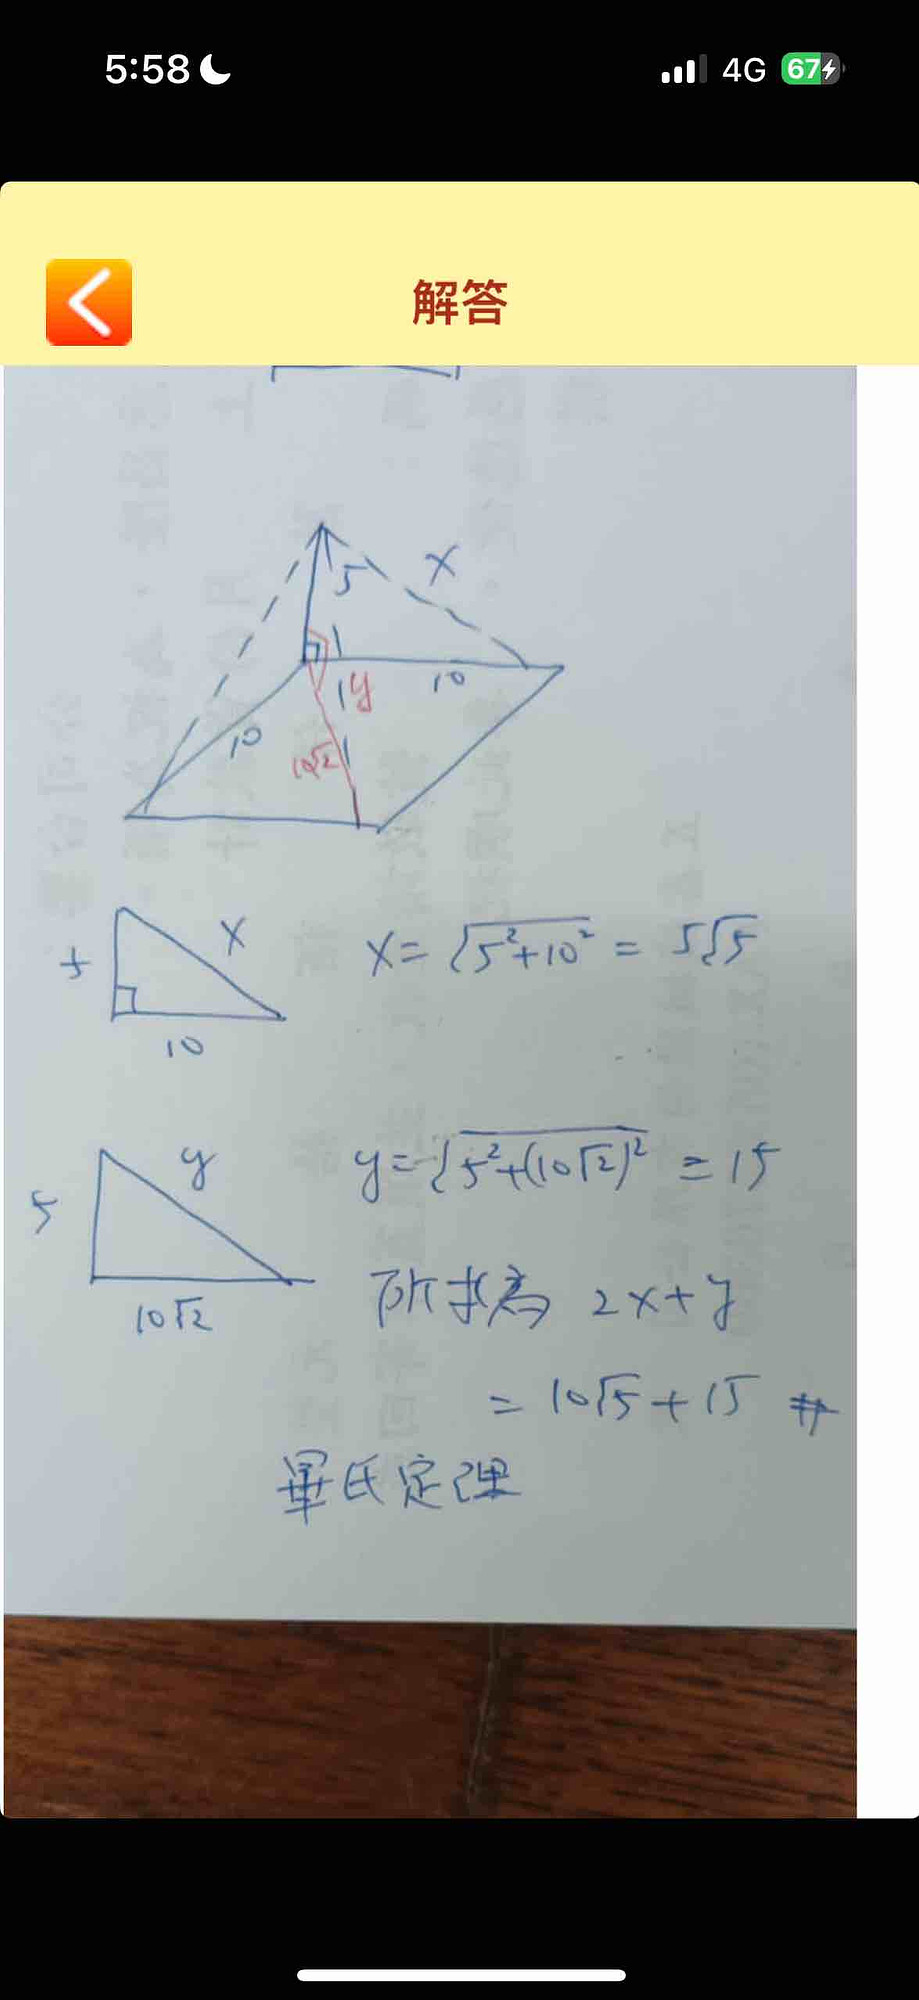 5:58
4G
67
解答
5
x
10
y
10
10√2
5
x
10
x = √5²+10² = 5√5
5
y
10√2
y = √5²+(10√2)² = 15
所求為 2x+y
= 10√5+15 #
畢氏定理